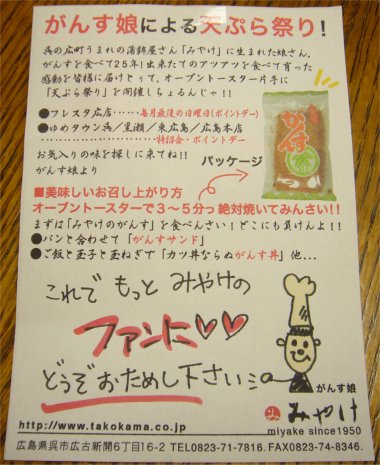 がんす娘による天ぷら祭り!
呉の広町うまれの蒲鉾屋さん「みやけ」に生まれた娘さん。
がんすを食べて25年!出来たてのアツアツを食べて育った
感動を皆様に届けとって、オーブントースター片手に
「天ぷら祭り」を開催しちょるんじゃ!!
●フレスタ広店……毎月最後の日曜日(ポイントデー)
●ゆめタウン呉/黒瀬/東広島/広島本店
……………特招会・ポイントデー
お気入りの味を探しに来てね!!
がんす娘より
パッケージ
がんす
■美味しいお召し上がり方
オーブントースターで3〜5分っ絶対焼いてみんさい!!
まずは「みやけのがんす」を食べんさい!どこにも負けんよ!!
●パンと合わせて「がんすサンド」
●ご飯と玉子と玉ねぎで「カツ丼ならぬがんす丼」他…
これで もっと みやけの
ファンに♡♡
どうぞおためし下さい
がんす娘
みやけ
http://www.takokama.co.jp
miyake since1950
広島県呉市広古新開6丁目16-2 TEL0823-71-7816. FAX0823-74-8346.